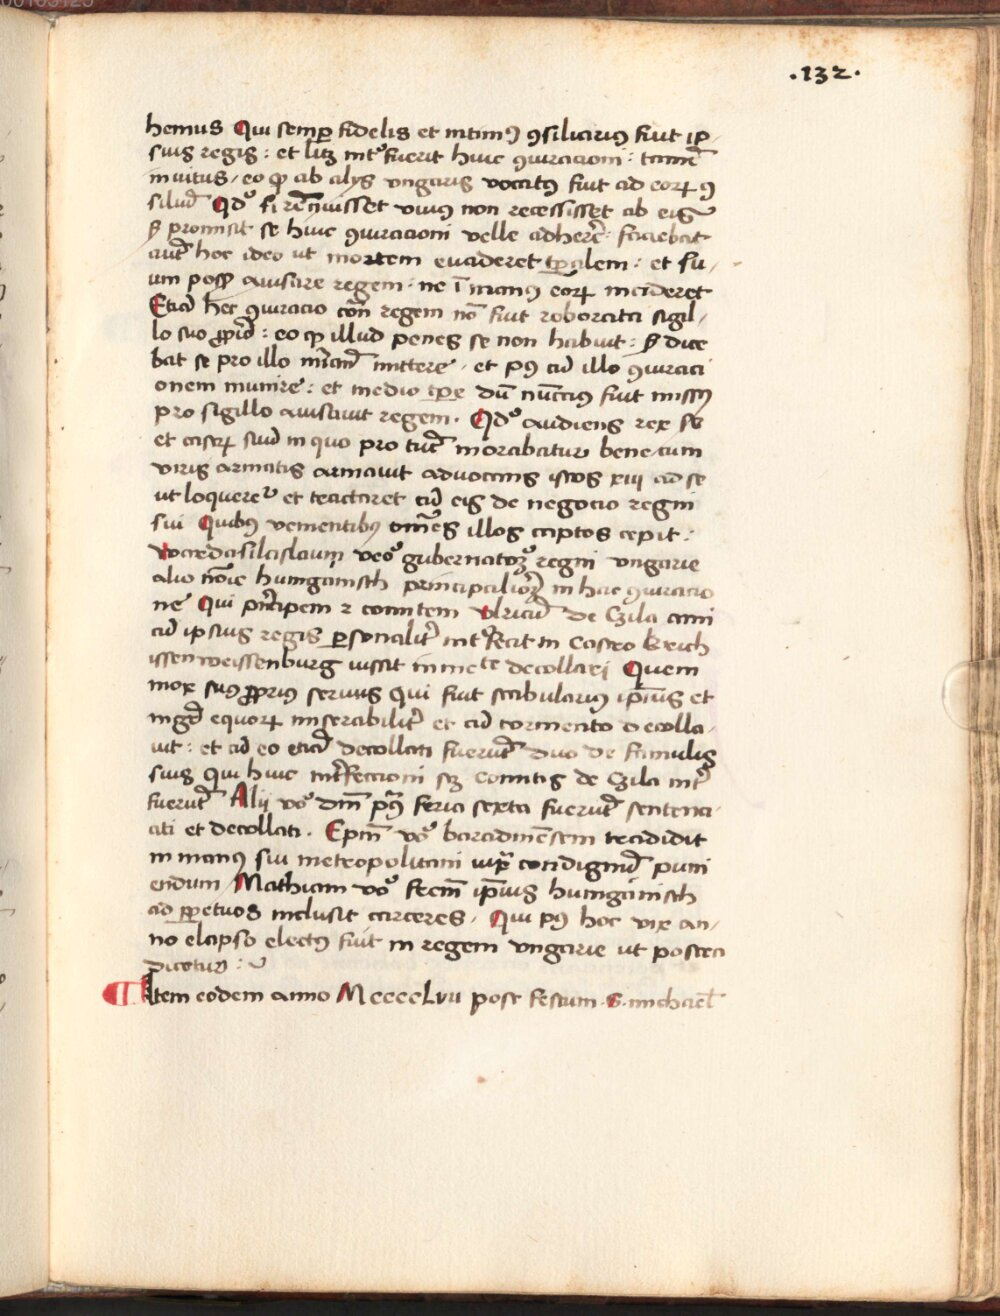 .132.
hemus Qui semp fidelis et intimꝰ ꝯsiliariꝰ fuit ip
suis regis : et litꝫ intꝰfuerit huic ꝯiuracioni : tamē
inuitus / eo ꝙ ab alijs ungaris vocatꝰ fuit ad eoꝝ ꝯ
siliū Qdꝰ si renuisset viuus non recessisset ab eis
ꝫ promisit se huic ꝯiuracioni velle adherē : faciebat
autē hoc ideo ut mortem euaderet tpalem : et su /
um posꝫ auisare regem . ne ī manꝰ eoꝝ incideret
Etiā hec ꝯiuracio cont̄ regem nō fuit roborata sigil /
lo suo ꝓprio : eo ꝙ illud penes se non habuit : ꝫ dice
bat se pro illo mittere . et pꝰ cū illo ꝯiuraci
onem munire : et medio tpe dū nūcciꝰ fuit missꝰ
pro sigillo auisauit regem . Qdꝰ audiens rex se
et castꝝ suū in quo pro tūc morabatur bene cum
viris armatis armauit aduocans istos xiij ad se
ut loquereꝛ et tractaret cū eis de negocio regni
sui Quibꝰ venientibꝰ omēs illos captos cepit :
vocedasilaslaum veoꝰ gubernatoꝝ regni ungarie
alio nōie hunganisch principalioꝝ in hac ꝯiuracio
ne Qui pncipem ⁊ comitem Ulricū de Czila auu
cū ipsius regis psonalit intfecit in Castro krich
issenweissenburg iussit in mete decollari Quem
mox suꝰ ꝓprius seruus Qui fuit stabulariꝰ ipius et
mgr̄ equoꝝ miserabilit et cū tormento decolla /
uit : et cū eo etiā decollati fuerūt duo de famulis
suis Qui huic intfeccioni sꝫ Comitis de Czila intꝰ
fuerūt Alij voꝰ dn̄m pꝰ feria sexta fuerūt sentenci
ati et decollati . Epm̄ voꝰ baradinēsem tradidit
in manꝰ sui metropolitani iuxꝰ condignū puni
endum Mathiam voꝰ frem̄ ipius hunganisch
ad ppetuos inclusit carceres . Qui pꝰ hoc vix an /
no elapso electꝰ fuit in regem ungarie ut postea
dicetur :
Item eodem anno MccccLvii post festum S. michael